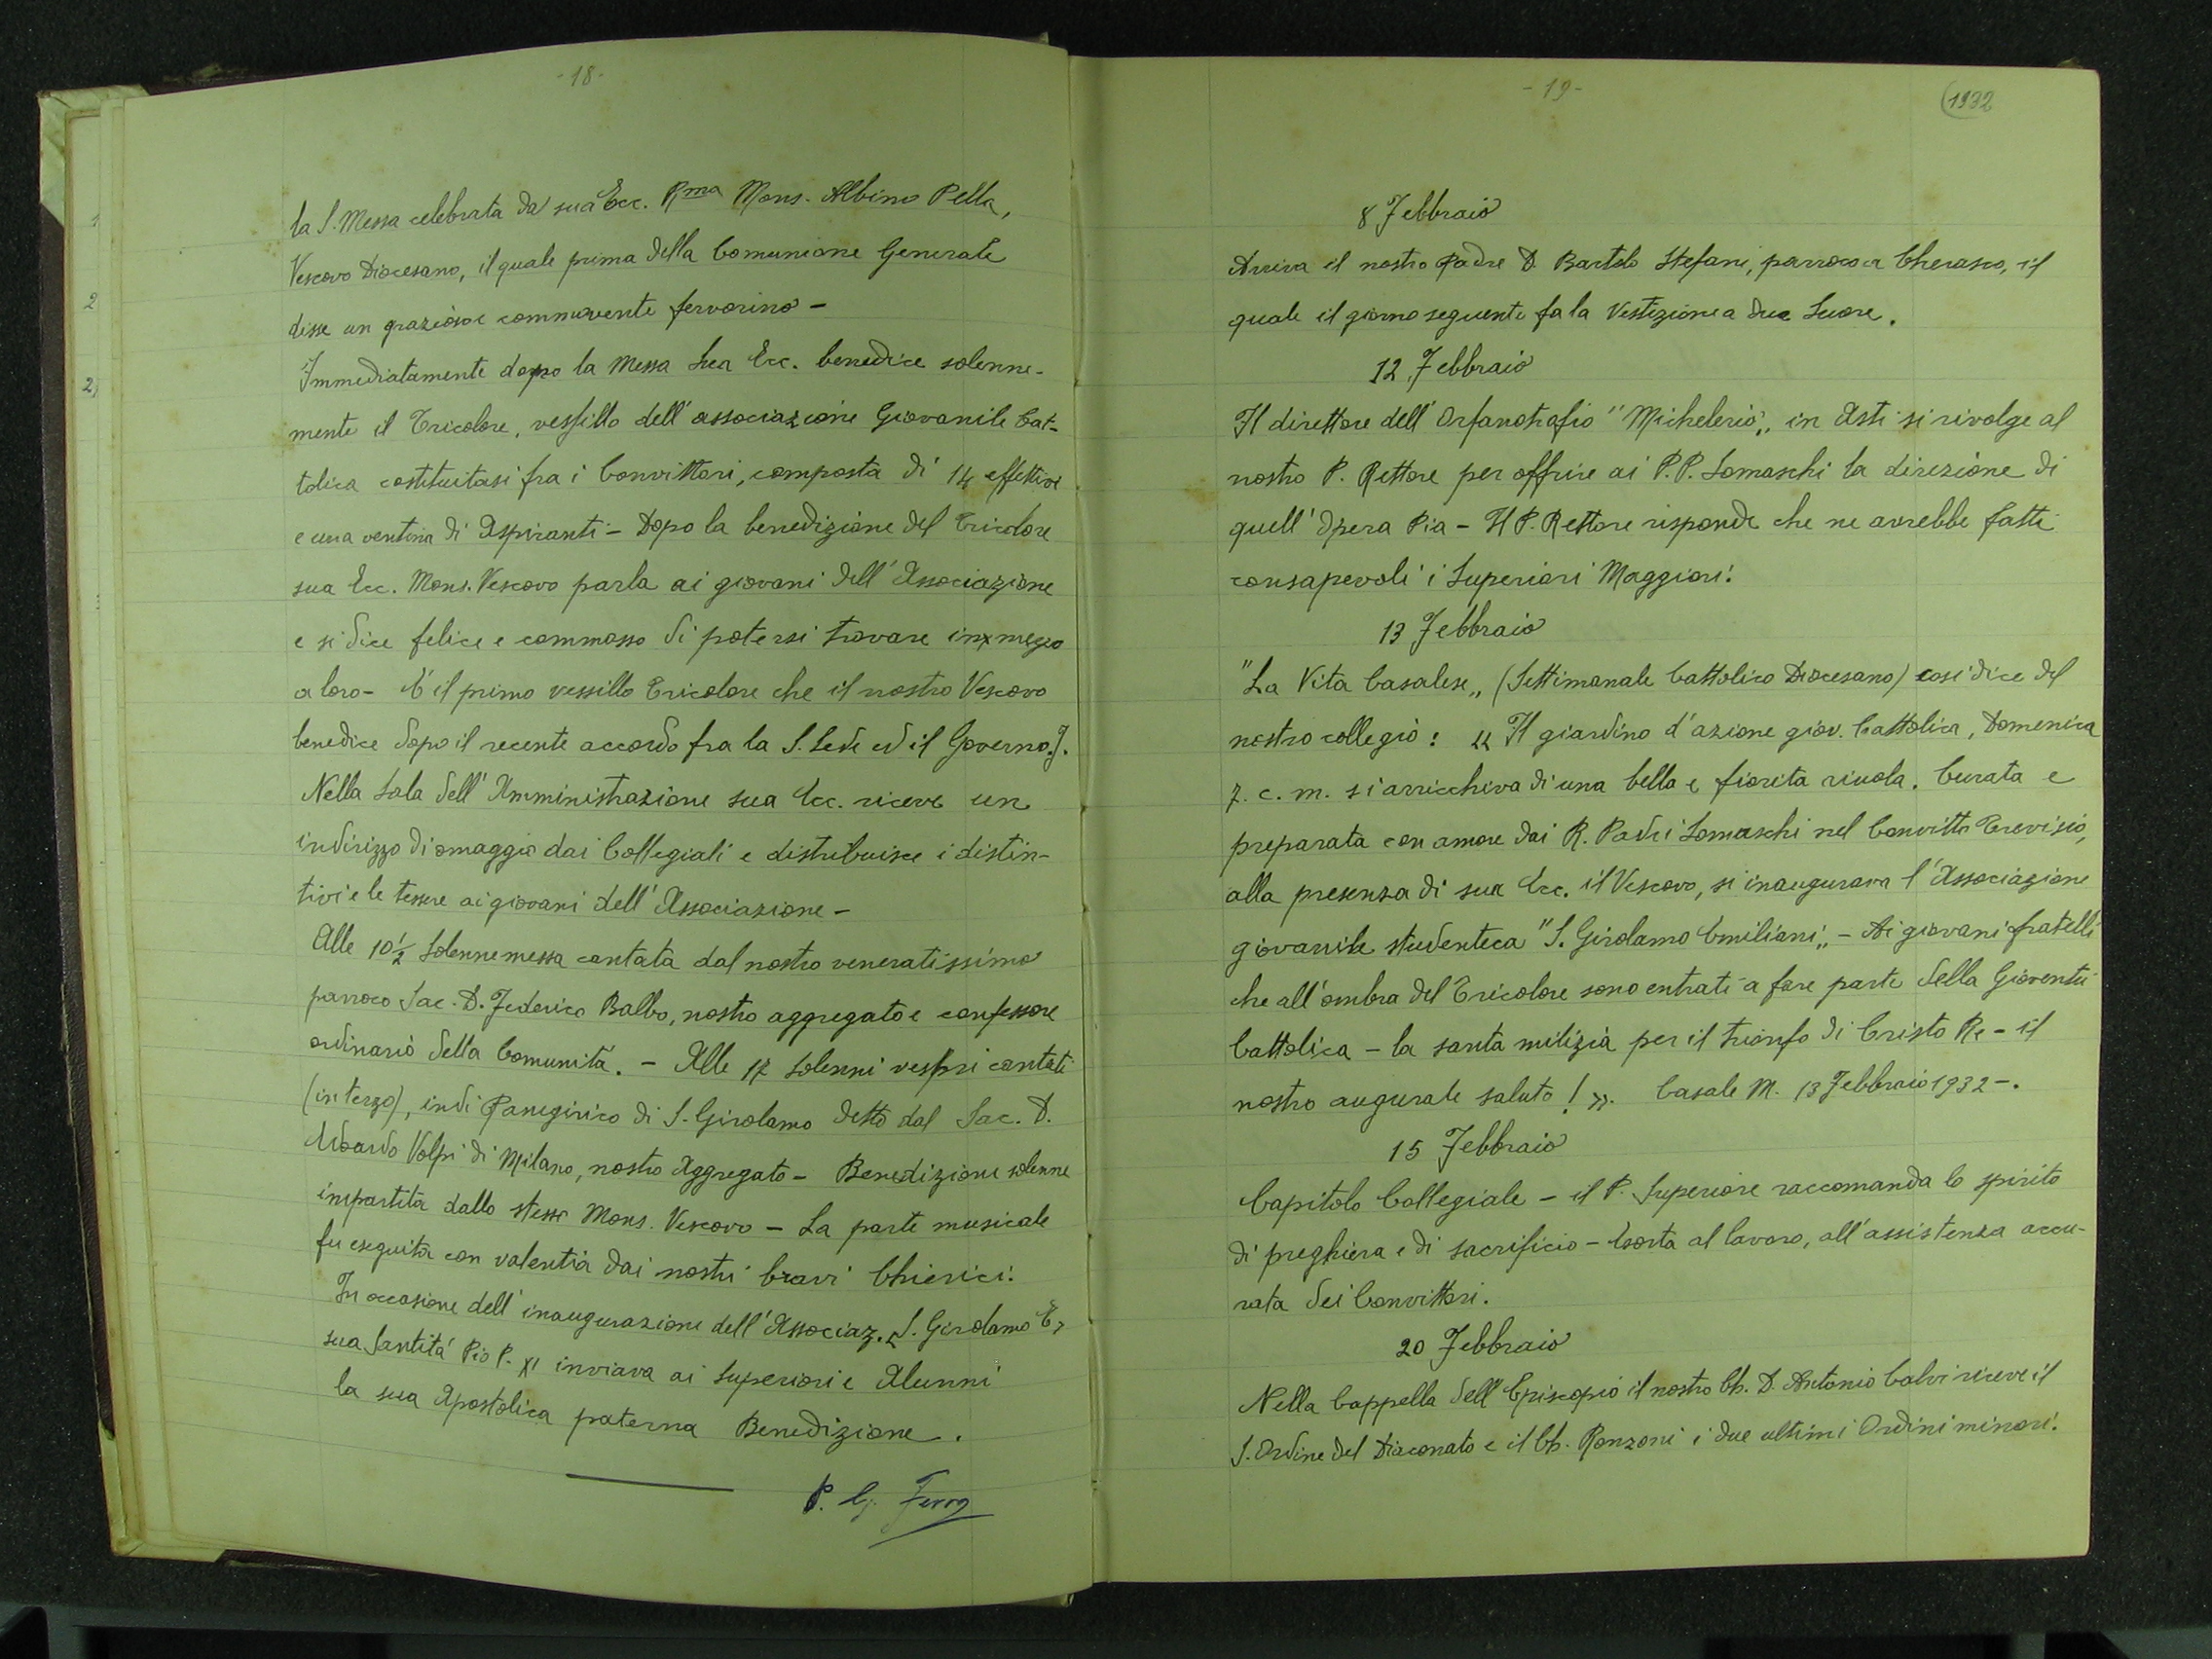 -18-
la S. Messa celebrata da sua Ecc. Rma Mons. Albino Pella,
Vescovo Diocesano, il quale prima della Comunione Generale
disse un grazioso e commovente fervorino -
Immediatamente dopo la Messa Sua Ecc. benedice solenne-
mente il Tricolore, vessillo dell'associazione Giovanile Cat-
tolica costituitasi fra i Convittori, composta di 14 effettivi
e una ventina di Aspiranti - Dopo la benedizione del Tricolore
sua Ecc. Mons. Vescovo parla ai giovani dell'Associazione
e si dice felice e commosso di potersi trovare in mezzo
a loro - È il primo vessillo Tricolore che il nostro Vescovo
benedice dopo il recente accordo fra la S. Sede ed il Governo. I.
Nella Sala dell'Amministrazione sua Ecc. riceve un
indirizzo di omaggio dai Collegiali e distribuisce i distin-
tivi e le tessere ai giovani dell'Associazione -
Alle 10½ Solenne messa cantata dal nostro veneratissimo
parroco Sac. D. Federico Balbo, nostro aggregato e confessore
ordinario della Comunità. - Alle 17 solenni vespri cantati
(in terzo), indi Panegirico di S. Girolamo detto dal Sac. D.
Edoardo Volpi di Milano, nostro Aggregato - Benedizione solenne
impartita dallo stesso Mons. Vescovo - La parte musicale
fu eseguita con valentia dai nostri bravi Chierici.
In occasione dell'inaugurazione dell'Associaz. « S. Girolamo E »
sua Santità Pio P. XI inviava ai Superiori e Alunni
la sua Apostolica paterna Benedizione.
P. G. Ferro
-19-
1932
8 Febbraio
Arriva il nostro Padre D. Bartolo Stefani, parroco a Cherasco, il
quale il giorno seguente fa la Vestizione a due Suore.
12 Febbraio
Il direttore dell'Orfanotrofio "Michelerio„ in Asti si rivolge al
nostro P. Rettore per offrire ai P.P. Somaschi la direzione di
quell'Opera Pia - Il P. Rettore risponde che ne avrebbe fatti
consapevoli i Superiori Maggiori.
13 Febbraio
"La Vita Casalese„ (Settimanale Cattolico Diocesano) così dice del
nostro collegio: « Il giardino d'azione giov. Cattolica, Domenica
7. c. m. si arricchiva di una bella e fiorita aiuola. Curata e
preparata con amore dai R. Padri Somaschi nel Convitto Trevisio,
alla presenza di sua Ecc. il Vescovo, si inaugurava l'Associazione
giovanile studentesca "S. Girolamo Emiliani„ - Ai giovani fratelli
che all'ombra del Tricolore sono entrati a fare parte della Gioventù
Cattolica - la santa milizia per il trionfo di Cristo Re - il
nostro augurale saluto! ». Casale M. 13 Febbraio 1932 -.
15 Febbraio
Capitolo Collegiale - il P. Superiore raccomanda lo spirito
di preghiera e di sacrificio - Esorta al lavoro, all'assistenza accu-
rata dei Convittori.
20 Febbraio
Nella Cappella dell'Episcopio il nostro Ch. D. Antonio Calvi riceve il
S. Ordine del Diaconato e il Ch. Ronzoni i due ultimi Ordini minori.